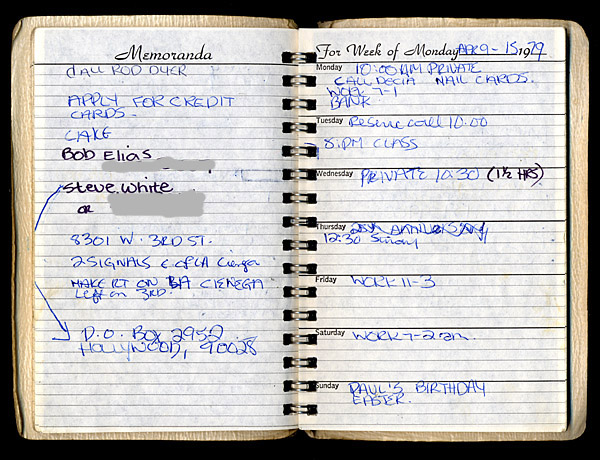 Memoranda
CALL ROD DYER
APPLY FOR CREDIT
CARDS.
CAKE
BOB Elias
Steve White
OR
8301 W. 3RD ST.
2 SIGNALS
MAKE RT ON LA CIENEGA
left on 3RD.
P.O. BOX 2952
HOLLYWOOD, 90028
For Week of Monday APR 9 - 15 1979
Monday 10:00 AM PRIVATE
CALL DECIA NAIL CARDS.
WORK 7-1
BANK
Tuesday Rescue call 10:00
8 PM CLASS
Wednesday PRIVATE 10:30 (1½ HRS)
Thursday ANNIVERSARY
12:30 Sunday
Friday WORK 11-3
Saturday WORK 7-2 am.
Sunday PAUL'S BIRTHDAY
EASTER.